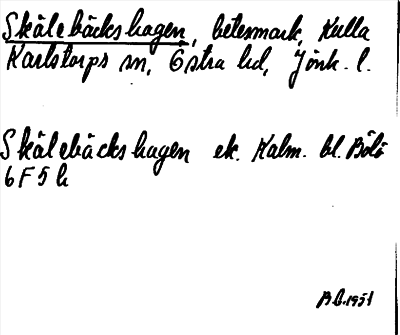 Skälebäckshagen, betesmark, Kulla
Karlstorps sn, Östra hd, Jönk. l.
Skälebäckshagen ek. Kalm. bl. Bölö
6 F 5 h
1951